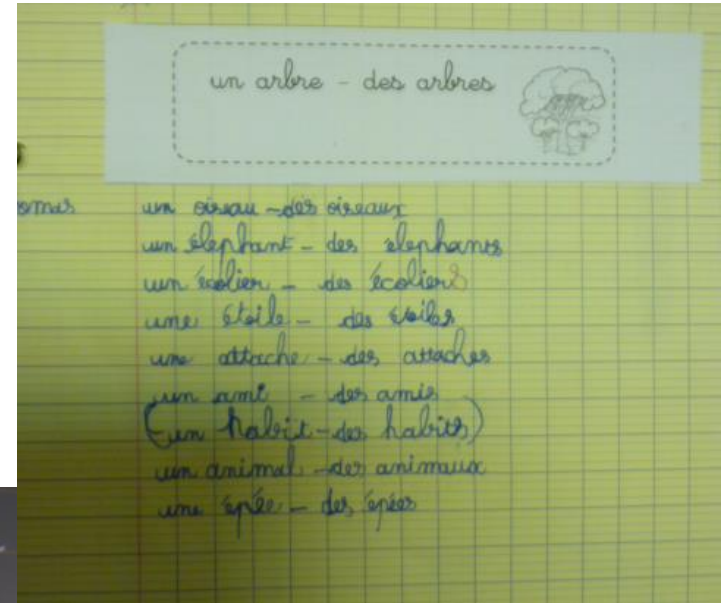 un arbre - des arbres
un oiseau - des oiseaux
un élephant - des élephants
un écolier - des écoliers
une étoile - des étoiles
une attache - des attaches
un ami - des amis
(un habit - des habits)
un animal - des animaux
une épée - des épées